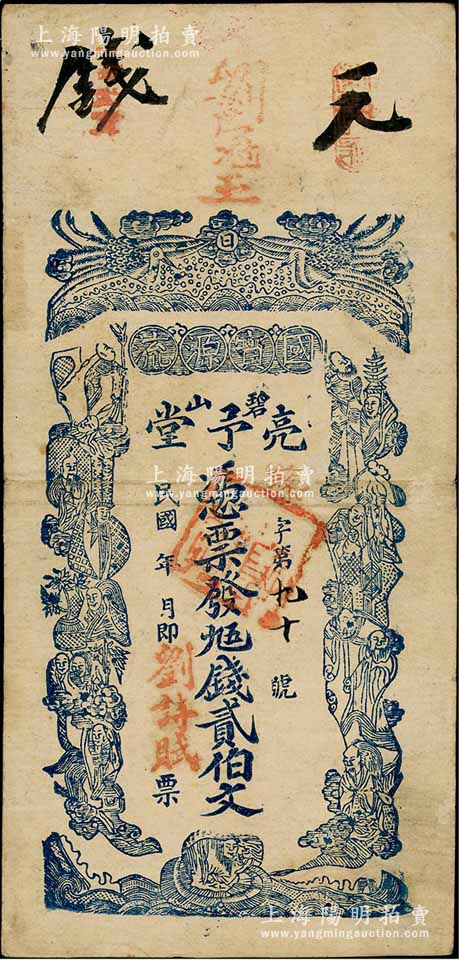 上海陽明拍賣
www.yangmingauction.com
天
錢
國寶源流
碧山
亮予堂
字第九十號
憑票發 錢貳伯文
民國 年 月即 票
劉 賦
上海陽明拍賣
上海陽明拍賣
www.yangmingauction.com
日